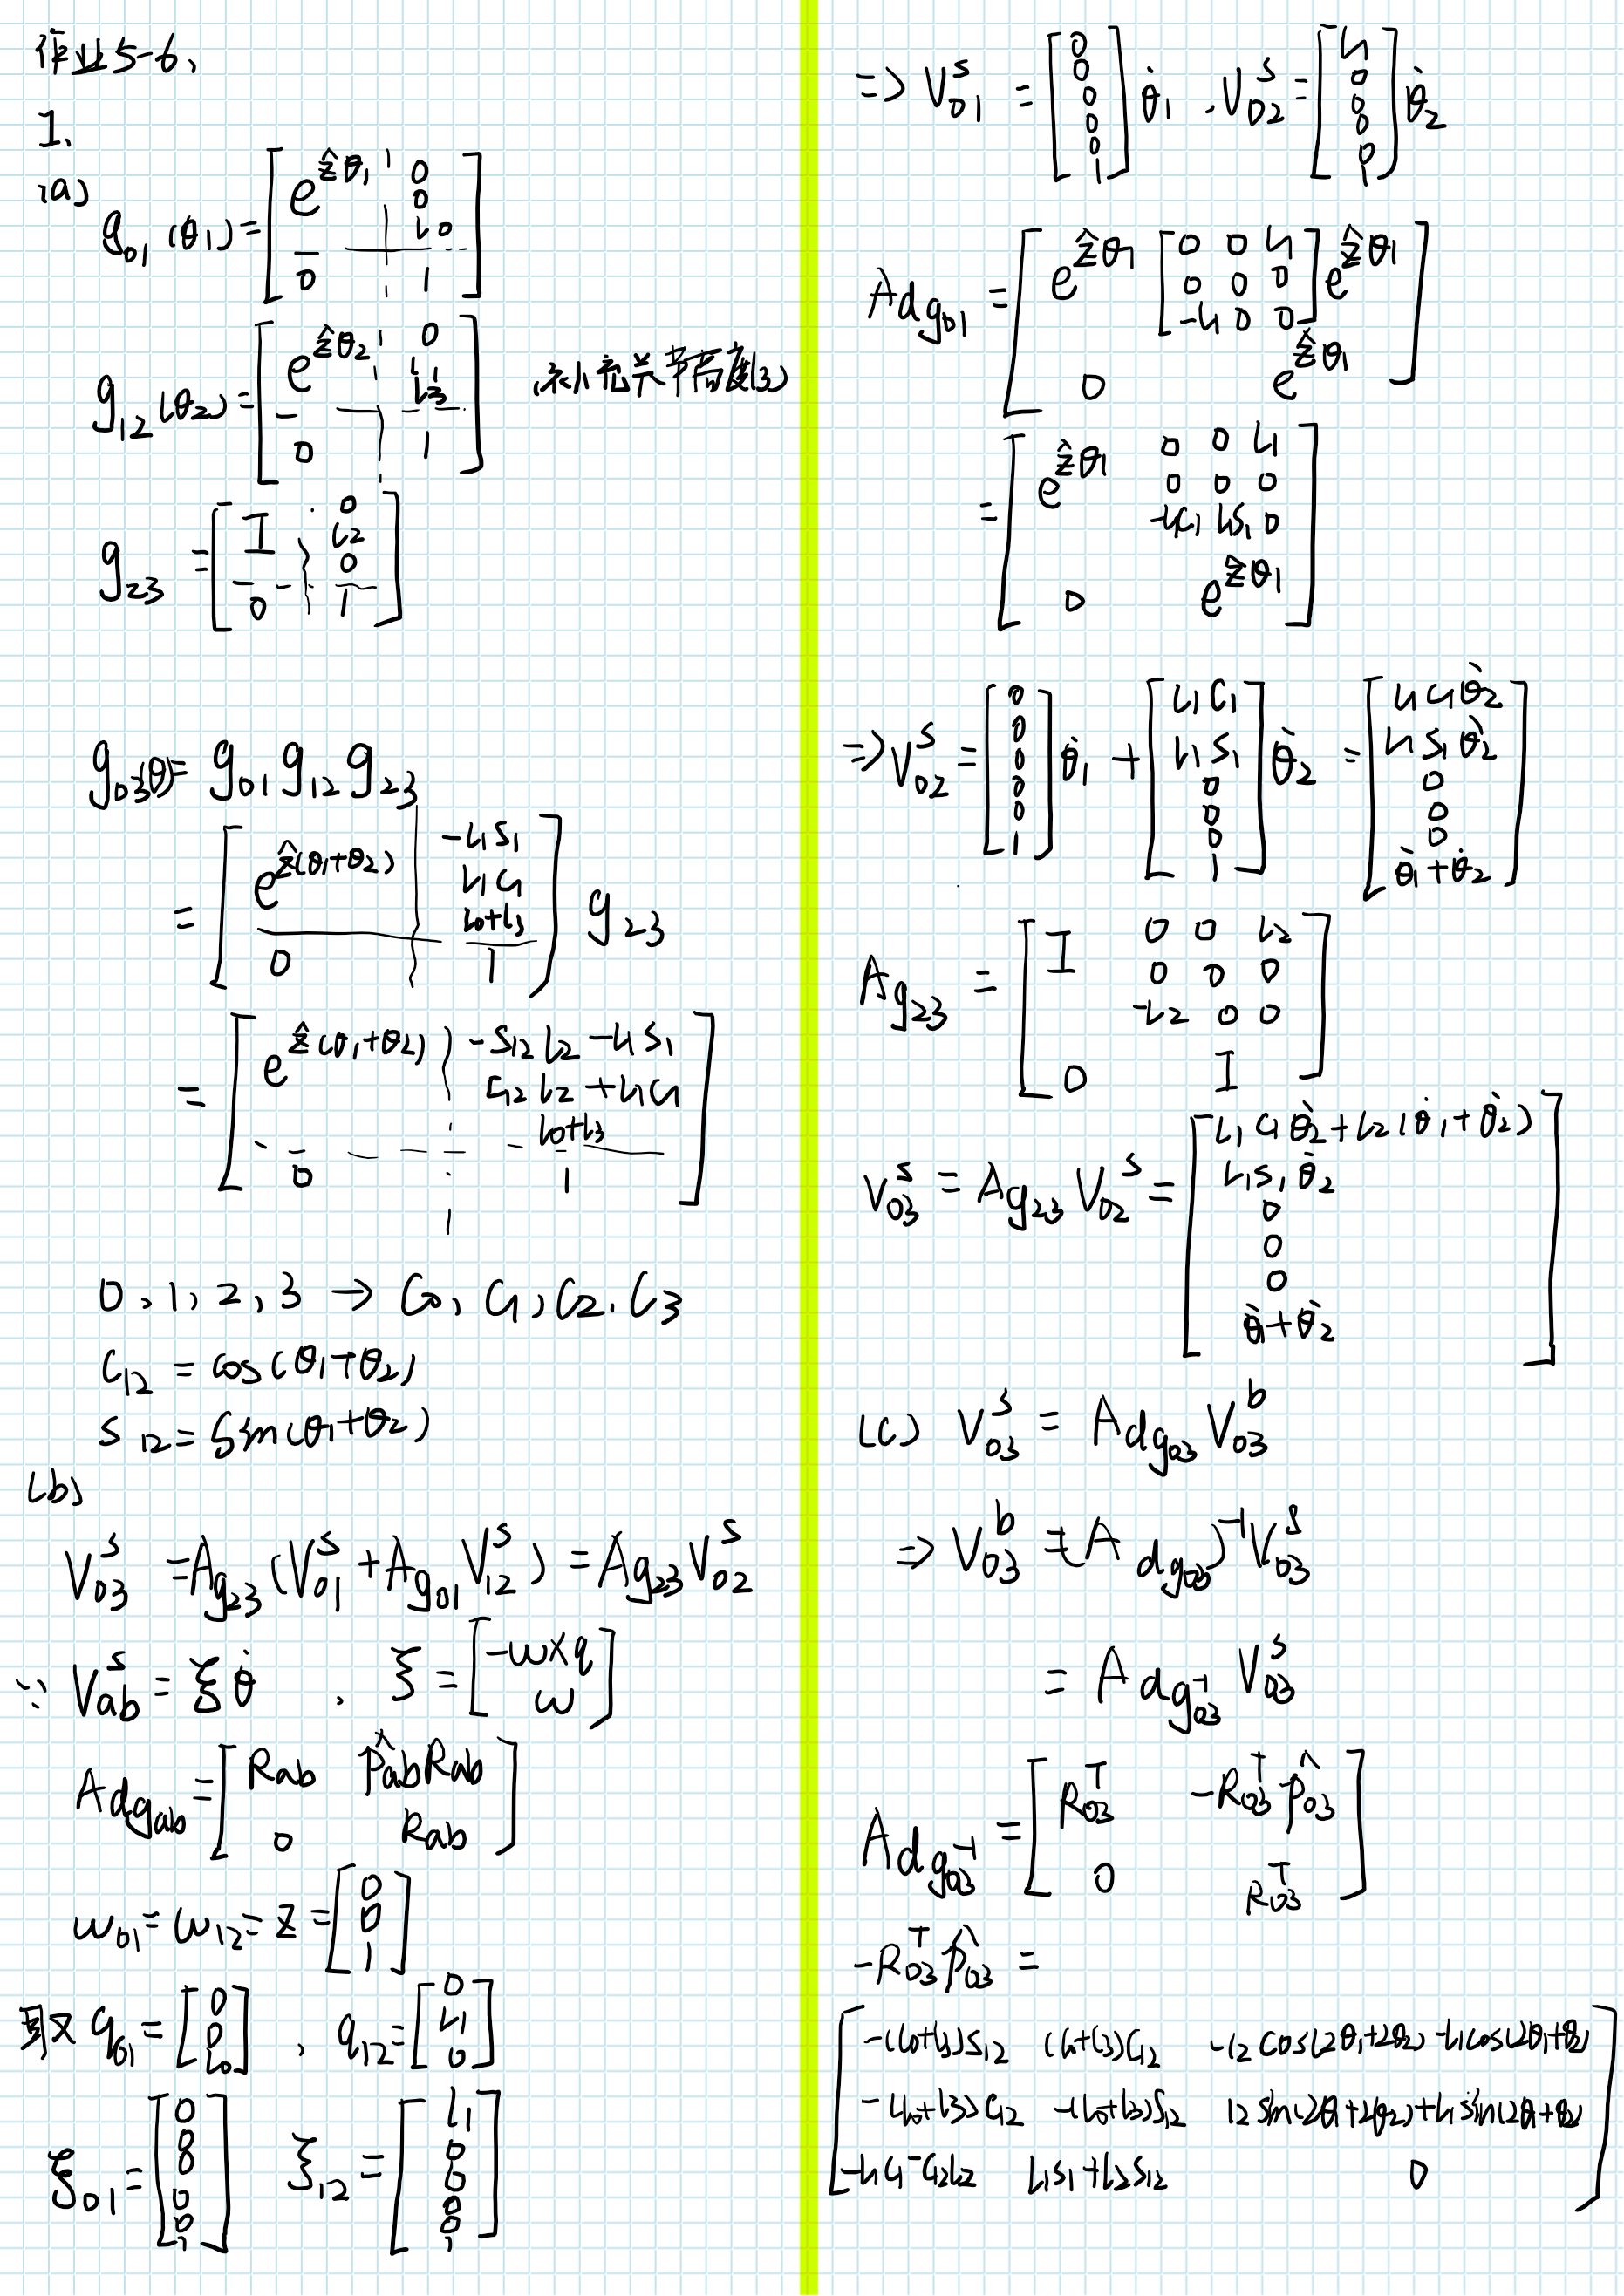 作业5-6、
1、
(a)
g₀₁(θ₁) = [ e^{ẑθ₁} | 0 0 l₀ ; 0 | 1 ]
g₁₂(θ₂) = [ e^{ẑθ₂} | 0 l₁ l₃ ; 0 | 1 ] (补充关节高度l₃)
g₂₃ = [ I | 0 l₂ 0 ; 0 | 1 ]
g₀₃(θ) = g₀₁ g₁₂ g₂₃
= [ e^{ẑ(θ₁+θ₂)} | -l₁s₁ l₁c₁ l₀+l₃ ; 0 | 1 ] g₂₃
= [ e^{ẑ(θ₁+θ₂)} | -s₁₂l₂-l₁s₁ c₁₂l₂+l₁c₁ l₀+l₃ ; 0 | 1 ]
0, 1, 2, 3 → C₀, C₁, C₂, C₃
c₁₂ = cos(θ₁+θ₂)
s₁₂ = sin(θ₁+θ₂)
(b)
V₀₃ˢ = A_{g₂₃}(V₀₁ˢ + A_{g₀₁} V₁₂ˢ) = A_{g₂₃} V₀₂ˢ
∵ V_{ab}ˢ = ξθ̇ , ξ = [ -ω×q ; ω ]
Ad_{g_{ab}} = [ R_{ab} p̂_{ab}R_{ab} ; 0 R_{ab} ]
ω₀₁ = ω₁₂ = z = [ 0 ; 0 ; 1 ]
取 q₀₁ = [ 0 ; 0 ; l₀ ] , q₁₂ = [ 0 ; l₁ ; 0 ]
ξ₀₁ = [ 0 ; 0 ; 0 ; 0 ; 0 ; 1 ] ξ₁₂ = [ l₁ ; 0 ; 0 ; 0 ; 0 ; 1 ]
=> V₀₁ˢ = [ 0 ; 0 ; 0 ; 0 ; 0 ; 1 ] θ̇₁ , V₀₂ˢ = [ l₁ ; 0 ; 0 ; 0 ; 0 ; 1 ] θ̇₂
Ad_{g₀₁} = [ e^{ẑθ₁} [ 0 0 l₁ ; 0 0 0 ; -l₁ 0 0 ] e^{ẑθ₁} ; 0 e^{ẑθ₁} ]
= [ e^{ẑθ₁} 0 0 l₁ ; 0 0 0 ; -l₁c₁ l₁s₁ 0 ; 0 e^{ẑθ₁} ]
=> V₀₂ˢ = [ 0 ; 0 ; 0 ; 0 ; 0 ; 1 ] θ̇₁ + [ l₁c₁ ; l₁s₁ ; 0 ; 0 ; 0 ; 1 ] θ̇₂ = [ l₁c₁θ̇₂ ; l₁s₁θ̇₂ ; 0 ; 0 ; 0 ; θ̇₁+θ̇₂ ]
A_{g₂₃} = [ I 0 0 l₂ ; 0 0 0 ; -l₂ 0 0 ; 0 I ]
V₀₃ˢ = A_{g₂₃} V₀₂ˢ = [ l₁c₁θ̇₂+l₂(θ̇₁+θ̇₂) ; l₁s₁θ̇₂ ; 0 ; 0 ; 0 ; θ̇₁+θ̇₂ ]
(c) V₀₃ˢ = Ad_{g₀₃} V₀₃ᵇ
=> V₀₃ᵇ = (Ad_{g₀₃})⁻¹ V₀₃ˢ
= Ad_{g₀₃⁻¹} V₀₃ˢ
Ad_{g₀₃⁻¹} = [ R₀₃ᵀ -R₀₃ᵀp̂₀₃ ; 0 R₀₃ᵀ ]
-R₀₃ᵀp̂₀₃ =
[ -(l₀+l₃)s₁₂ (l₀+l₃)c₁₂ -l₂cos(2θ₁+2θ₂)-l₁cos(2θ₁+θ₂)
-(l₀+l₃)c₁₂ -(l₀+l₃)s₁₂ l₂sin(2θ₁+2θ₂)+l₁sin(2θ₁+θ₂)
-l₁c₁-c₁₂l₂ l₁s₁+l₂s₁₂ 0 ]